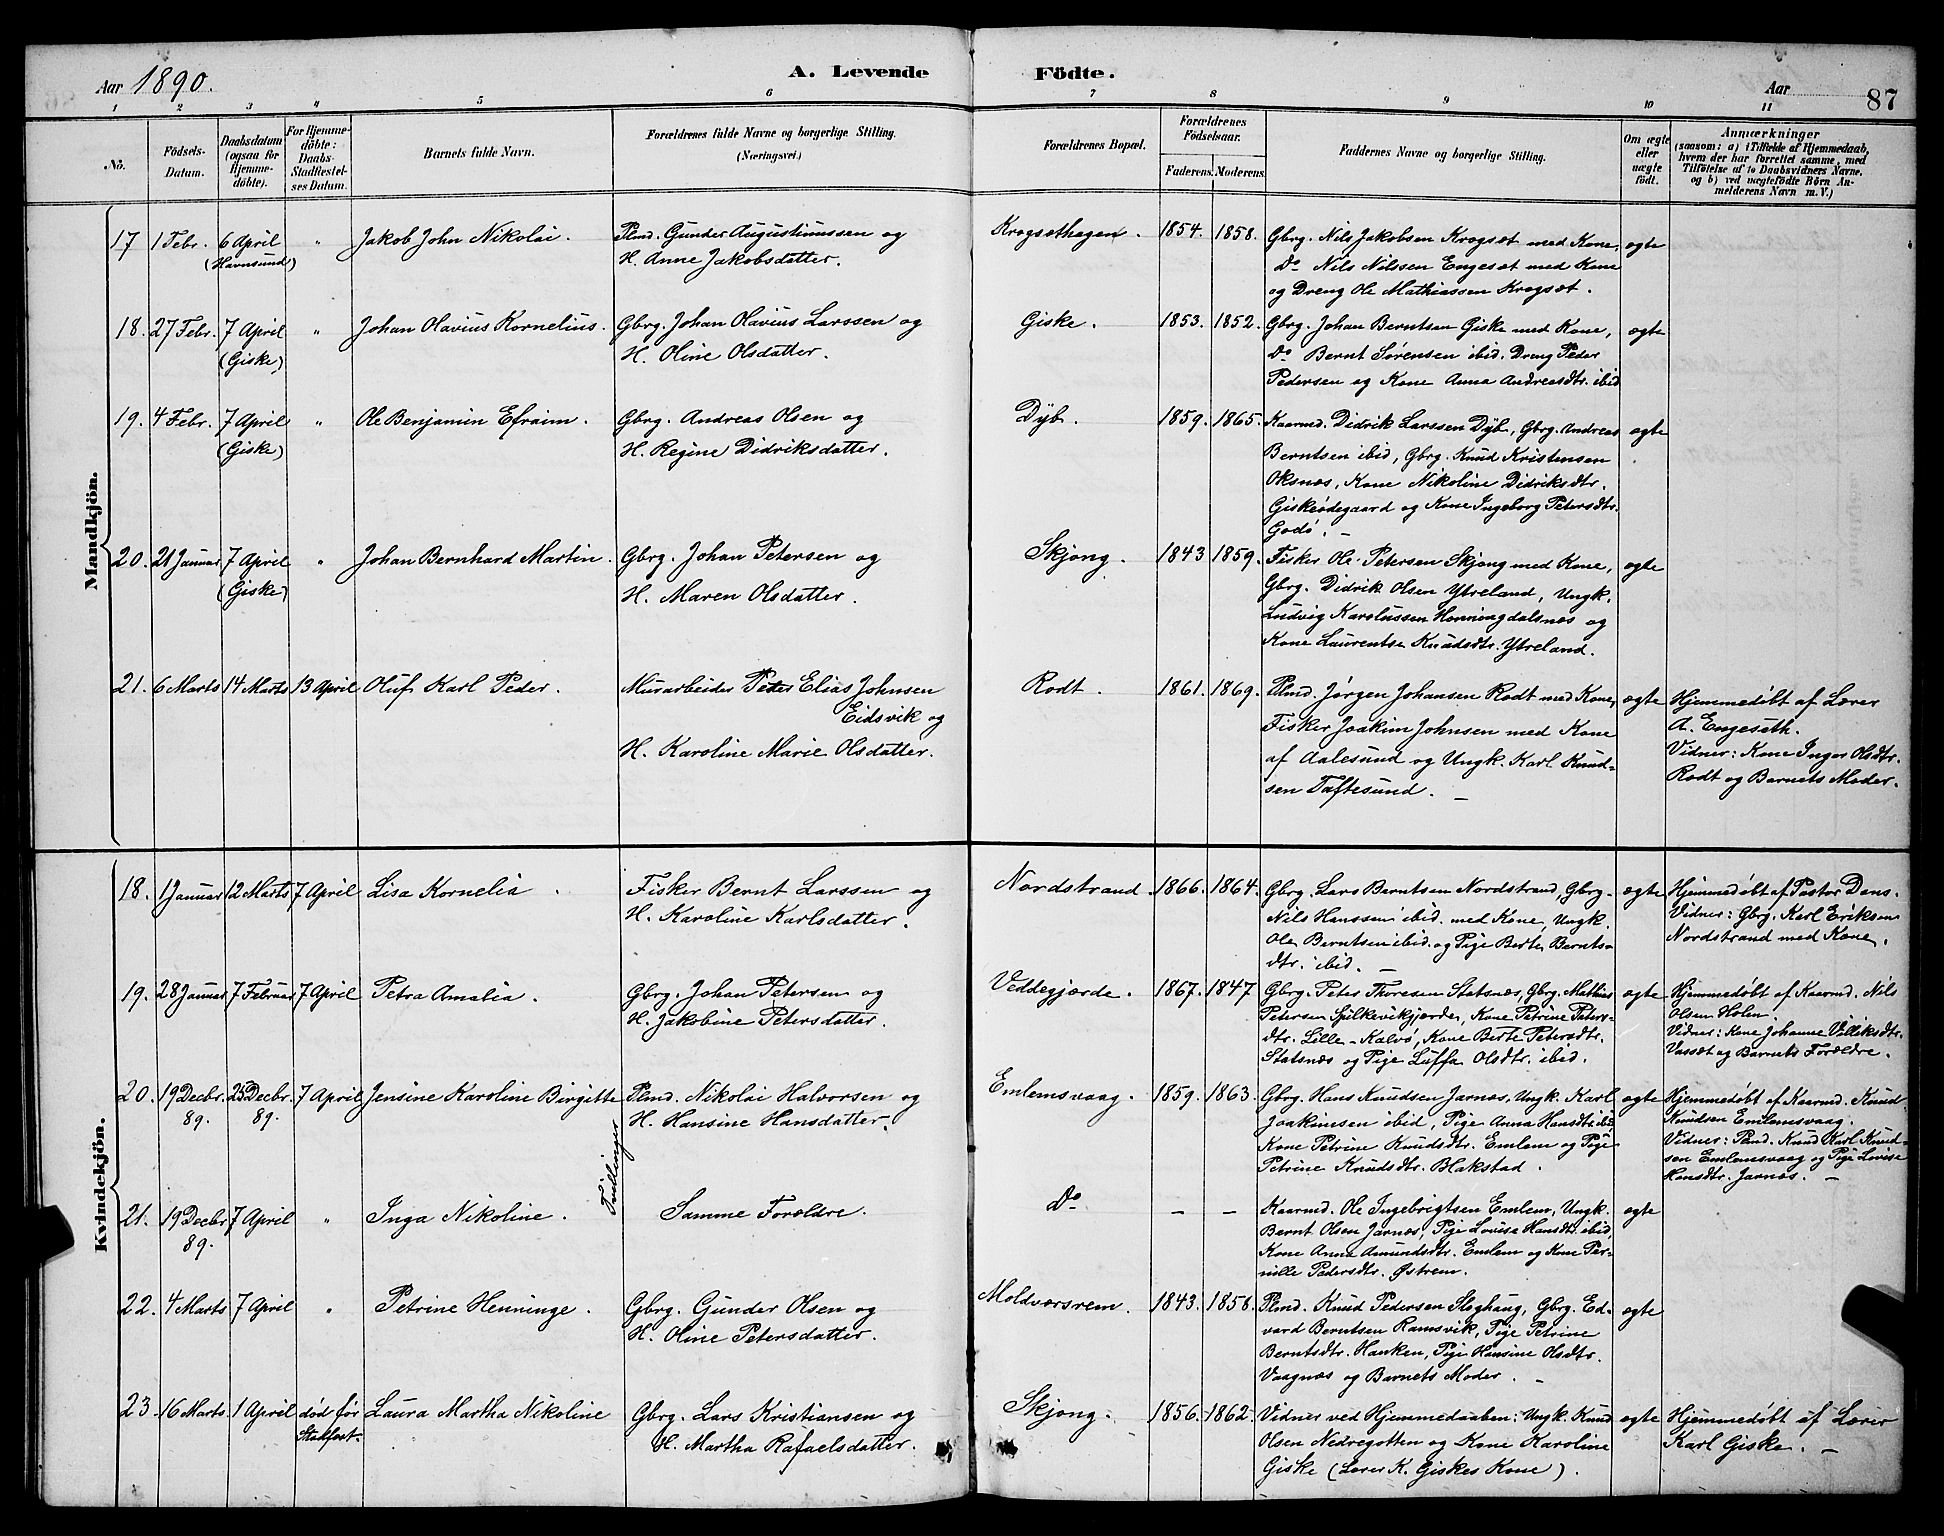 Aar 1890.
A. Levende Födte.
Aar
87
1 2 3 4 5 6 7 8 9 10 11
No.
Födsels-
Datum.
Daabsdatum
(ogsaa for
Hjemme-
döbte).
For Hjemme-
döbte:
Daabs-
Stadfestel-
ses Datum.
Barnets fulde Navn.
Forældrenes fulde Navne og borgerlige Stilling.
(Næringsvei.)
Forældrenes Bopæl.
Forældrenes
Födselsaar.
Faderens. Moderens.
Faddernes Navne og borgerlige Stilling.
Om ægte
eller
uægte
födt.
Anmærkninger
(saasom: a) i Tilfælde af Hjemmedaab,
hvem der har forrettet samme, med
Tilföielse af to Daabsvidners Navne,
og b) ved uægtefödte Börn An-
melderens Navn m. V.)
Mandkjön.
17 1 Febr. 6 April " Jakob John Nikolai. Plmd. Gunder Augustinussen og Krogsethagen. 1854. 1858. Gbrg. Nils Jakobsen Krogset med Kone, ægte
(Havnsund) H. Anne Jakobsdatter. Do Nils Nilssen Engeset med Kone
og Dreng Ole Mathiassen Krogset.
18. 27 Febr. 7 April " Johan Olavius Kornelius. Gbrg. Johan Olavius Larssen og Giske. 1853. 1852. Gbrg. Johan Berntsen Giske med Kone, ægte
(Giske) H. Oline Olsdatter. Do Bernt Sørensen ibid. Dreng Peder
Pedersen og Kone Anna Andreasdtr. ibid
19. 4 Febr. 7 April " Ole Benjamin Efraim. Gbrg. Andreas Olsen og Dyb. 1859. 1865. Kaarmd. Didrik Larssen Dyb, Gbrg. Andreas ægte
(Giske) H. Regine Didriksdatter. Berntsen ibid, Gbrg. Knud Kristensen
Oksnæs, Kone Nikoline Didriksdtr.
Giskeødegaard og Kone Ingeborg Petersdtr.
Godø. –
20. 21 Januar 7 April " Johan Bernhard Martin. Gbrg. Johan Petersen og Skjong. 1843 1859. Fisker Ole Petersen Skjong med Kone, ægte
(Giske) H. Maren Olsdatter. Gbrg. Didrik Olsen Ytreland, Ungk.
Ludvig Karolussen Honningdalsnæs og
Kone Laurentse Knudsdtr. Ytreland.
21. 6 Marts 14 Marts 13 April Oluf Karl Peder. Murarbeider Peter Elias Johnsen Rodt. 1861. 1869. Plmd. Jørgen Johansen Rodt med Kone, ægte Hjemmedøbt af Lærer
Eidsvik og Fisker Joakim Johnsen med Kone A. Engeseth.
H. Karoline Marie Olsdatter. af Aalesund og Ungk. Karl Knud- Vidner: Kone Inger Olsdtr.
sen Taftesund. – Rodt og Barnets Moder.
Kvindekjön.
18. 1 Januar 12 Marts 7 April Lisa Kornelia. Fisker Bernt Larssen og Nordstrand. 1866. 1864. Gbrg. Lars Berntsen Nordstrand, Gbrg. ægte Hjemmedøbt af Pastor Dans.
H. Karoline Karlsdatter. Nils Hanssen ibid. med Kone, Ungk. Vidner: Gbrg. Karl Eriksen
Ole Berntsen ibid. og Pige Berte Bernts- Nordstrand med Kone.
dtr. ibid. –
19. 28 Januar 7 Februar 7 April Petra Amalia. Gbrg. Johan Petersen og Veddegjærde. 1867. 1847 Gbrg. Peter Thoresen Statsnæs, Gbrg. Mathias ægte Hjemmedøbt af Kaarmd. Nils
H. Jakobine Petersdatter. Petersen Spilkevikgjærde, Kone Petrine Peters- Olsen Holen.
dtr. Lille-Kalvø, Kone Berte Petersdtr. Vidner: Kone Johanne Villiksdtr.
Statsnæs og Pige Luffa Olsdtr. ibid. Vassæt og Barnets Forældre.
20. 19 Decbr. 25 Decbr. 7 April Jensine Karoline Birgitte Plmd. Nikolai Halvorsen og Emlemsvaag. 1859. 1863. Gbrg. Hans Knudsen Jarnæs, Ungk. Karl ægte Hjemmedøbt af Kaarmd. Knud
89. 89. H. Hansine Hansdatter. Joakimsen ibid, Pige Anna Hansdtr. ibid, Knudsen Emlemsvaag.
Kone Petrine Knudsdtr. Emlem og Pige Vidner: Plmd. Knud Karl Knud-
Petrine Knudsdtr. Blakstad. sen Emlemsvaag og Pige Lovise
Hansdtr. Jarnæs. –
Tvillinger
21. 19 Decbr 7 April " Inga Nikoline. Samme Forældre. Do – – Kaarmd. Ole Ingebrigtsen Emlem, Ungk. ægte
89. Bernt Olsen Jarnæs, Pige Lovise Hansdtr. ibid,
Kone Anna Amundsdtr. Emlem og Kone Per-
nille Pedersdtr. Østrem.
22. 4 Marts 7 April " Petrine Henninge. Gbrg. Gunder Olsen og Moldværsrem. 1843. 1858. Plmd. Knud Pedersen Sloghaug, Gbrg. Ed- ægte
H. Oline Petersdatter. vard Berntsen Ramsvik, Pige Petrine
Berntsdtr. Hanken, Pige Hansine Olsdtr.
Vaagnæs og Barnets Moder. –
23. 16 Marts. 1 April død før Laura Martha Nikoline Gbrg. Lars Kristiansen og Skjong. 1856. 1862. Vidner ved Hjemmedaaben: Ungk. Knud ægte Hjemmedøbt af Lærer
Stadfest. H. Martha Rafaelsdatter. Olsen Nedregotten og Kone Karoline Karl Giske. –
Giske (Lærer K. Giskes Kone).